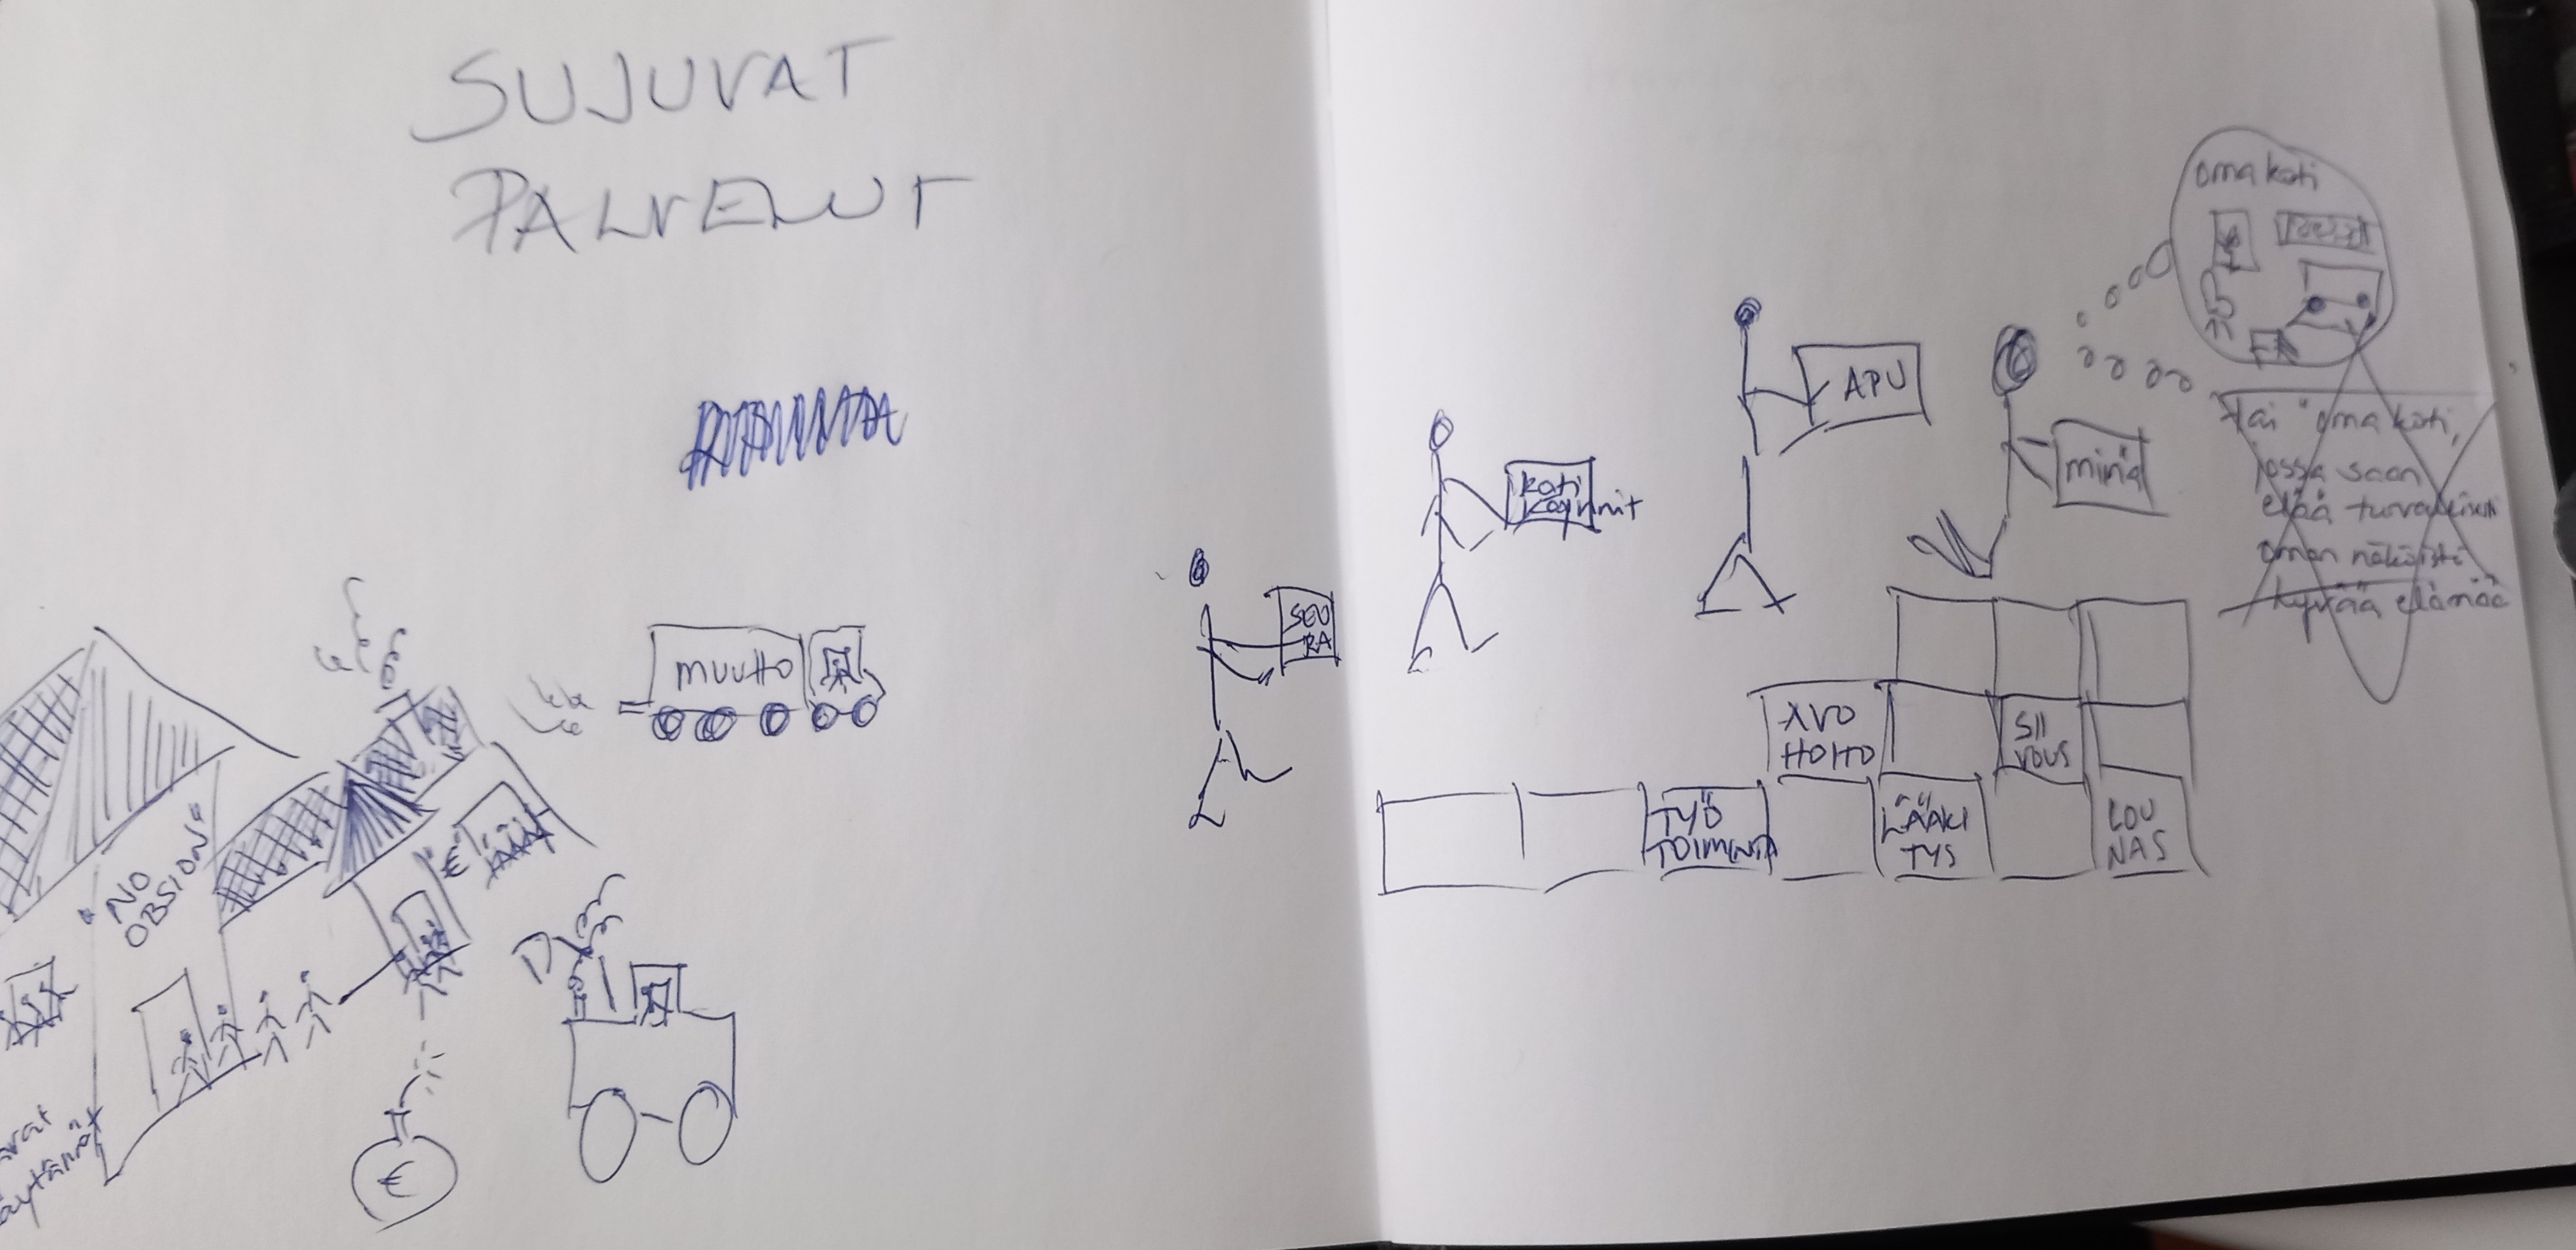 SUJUVAT
PALVELUT
MUUTTO
"NO
OBSION"
€
€
SEU
RA
koti
käynnit
APU
minä
oma koti
tai "oma koti,
jossa saan
elää turvallisesti
oman näköistä
hyvää elämää
AVO
HOITO
SII
VOUS
TYÖ
TOIMINTA
LÄÄKI
TYS
LOU
NAS